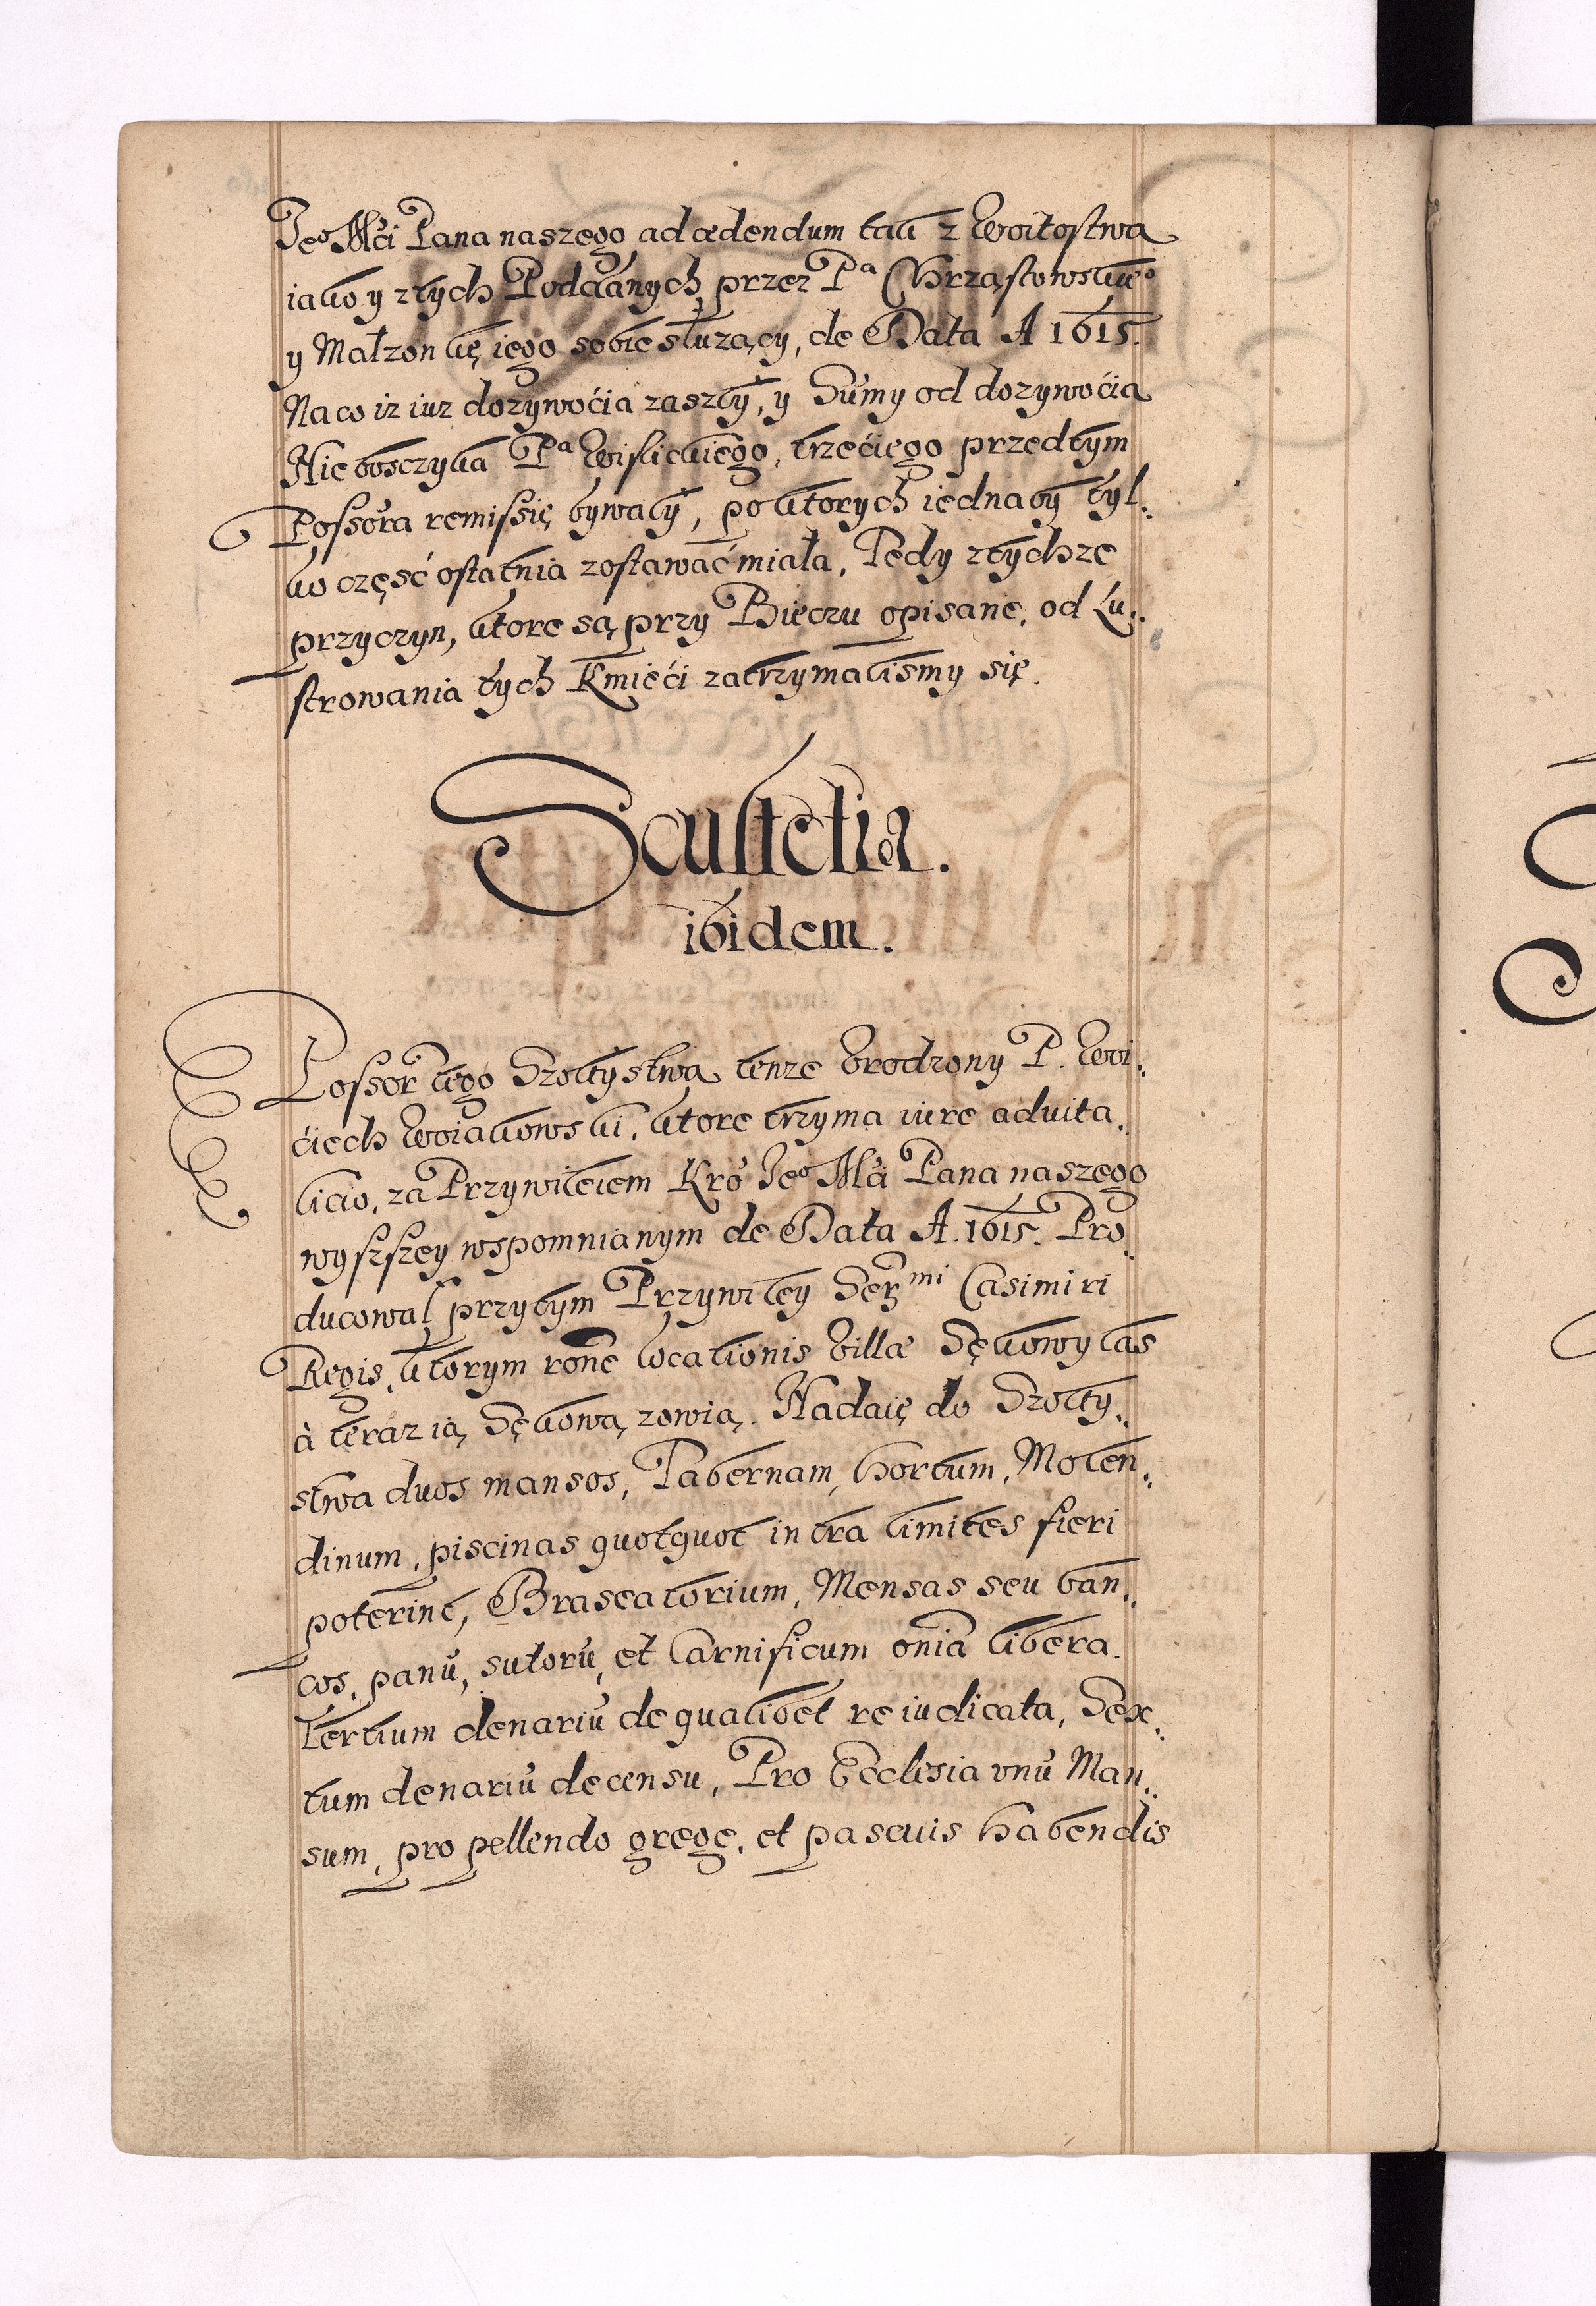 Jeo Mći Pana naszego ad cedendum tak z Woitostwa
iako y z tych Poddanych przez Pa Chrząstowskieo
y Małzonkę iego sobie służący, de Data A 1615.
Na co iz iuz dozywoćia zaszły, y Sumy od dozywoćia
Nieboszczyka Pa Wislickiego, trzećiego przed tym
Possora remissię bywały, po ktorych iedna by tyl:
ko część ostatnia zostawać miała, Tedy z tychze
przyczyn, ktore są przy Bieczu opisane, od Lu:
strowania tych Kmieći zatrzymalismy się.
Scultetia.
ibidem.
Possor tego Szołtystwa tenze Vrodzony P. Woi:
ćiech Woiakowski, ktore trzyma iure aduita:
licio, za Przywileiem Kro Jeo Mći Pana naszego
wyszszey wspomnianym de Data A. 1615. Pro:
ducował przy tym Przywiley Sermi Casimiri
Regis, ktorym rōne locationis Villæ Sękowy las
à teraz ią Sękową zowią. Nadaię do Szołty:
stwa duos mansos, Tabernam, hortum, Molen:
dinum, piscinas quotquot intra limites fieri
poterint, Braseatorium, Mensas seu ban:
cos, panū, sutorū, et Carnificum oniā libera.
Tertium denariū de qualibet re iudicata, Sex:
tum denariū de censu, Pro Ecclesia vnū Man:
sum, pro pellendo grege, et pascuis habendis